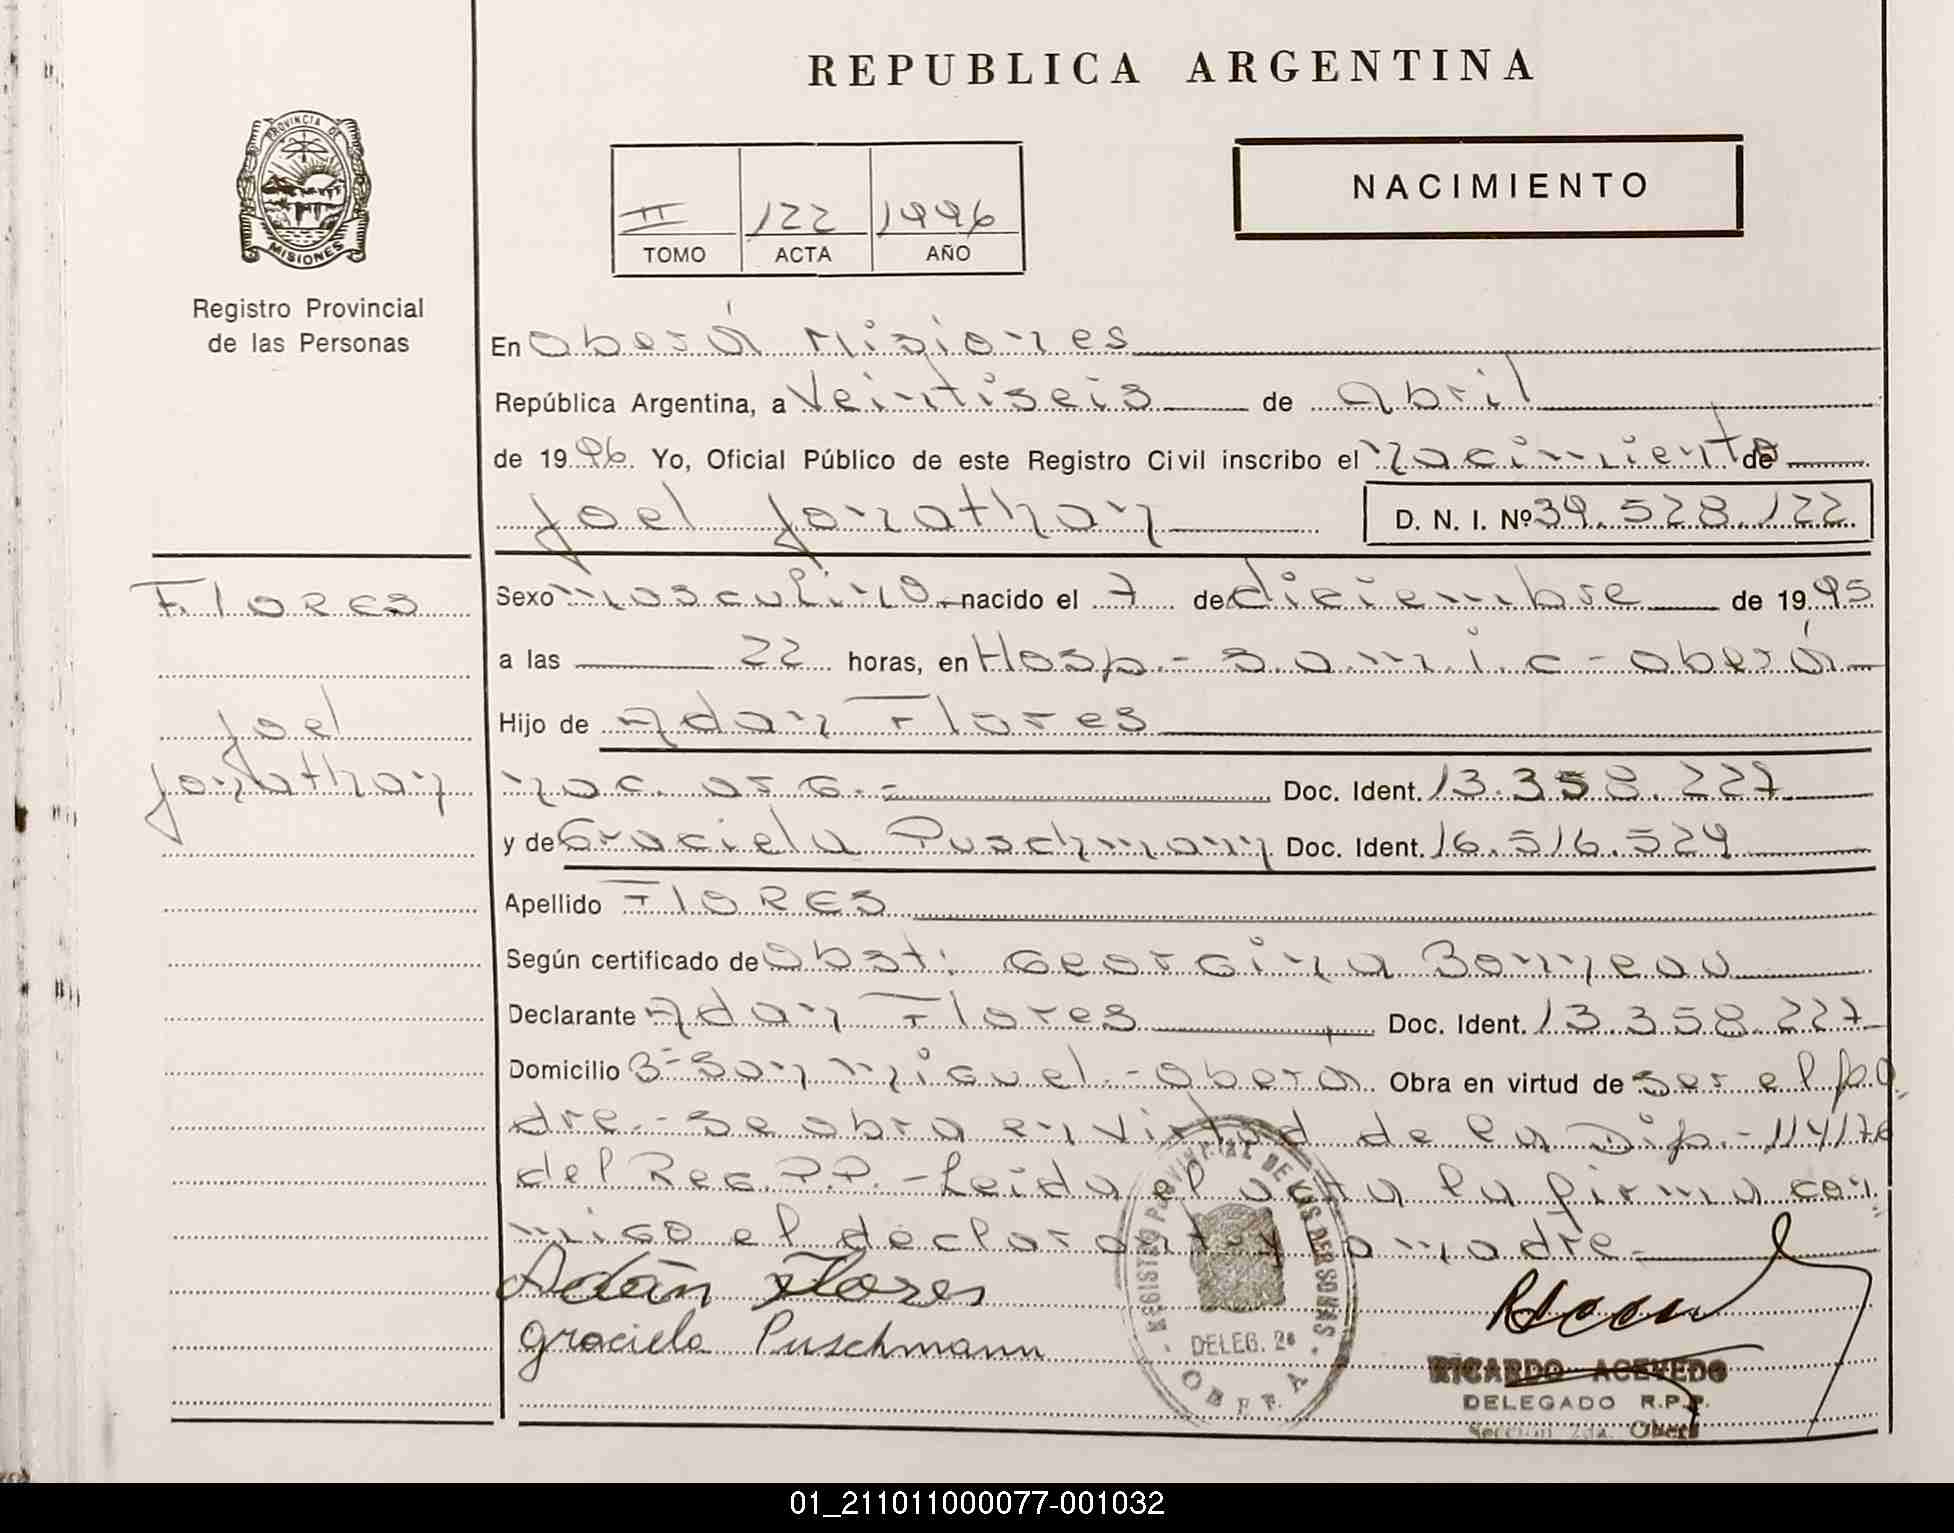 REPUBLICA ARGENTINA
PROVINCIA DE
MISIONES
Registro Provincial
de las Personas
II 122 1996
TOMO ACTA AÑO
NACIMIENTO
En Oberá Misiones
República Argentina, a Veintiseis de Abril
de 1996. Yo, Oficial Público de este Registro Civil inscribo el nacimiento de
Joel Jonathan D. N. I. Nº 39.528.122
Flores
Joel
Jonathan
Sexo masculino nacido el 7 de diciembre de 1995
a las 22 horas, en Hosp.- S.a.m.i.c - Oberá
Hijo de Adan Flores
nac. arg.- Doc. Ident. 13.358.227
y de Graciela Puschmann Doc. Ident. 16.516.529
Apellido FlORES
Según certificado de Obst: Georgina Bonneau
Declarante Adan Flores Doc. Ident. 13.358.227
Domicilio Bº San Miguel - Oberá. Obra en virtud de ser el pa
dre.- Se obra en virtud de la Dip.- 114/76
del Reg.P.P.- Leida el acta la firma con
migo el declarante y la madre.-
Adán Flores
Graciela Puschmann
REGISTRO PROVINCIAL DE LAS PERSONAS
DELEG. 2ª
OBERA
RICARDO ACEVEDO
DELEGADO R.P.P.
Sección 2da. Oberá
01_211011000077-001032